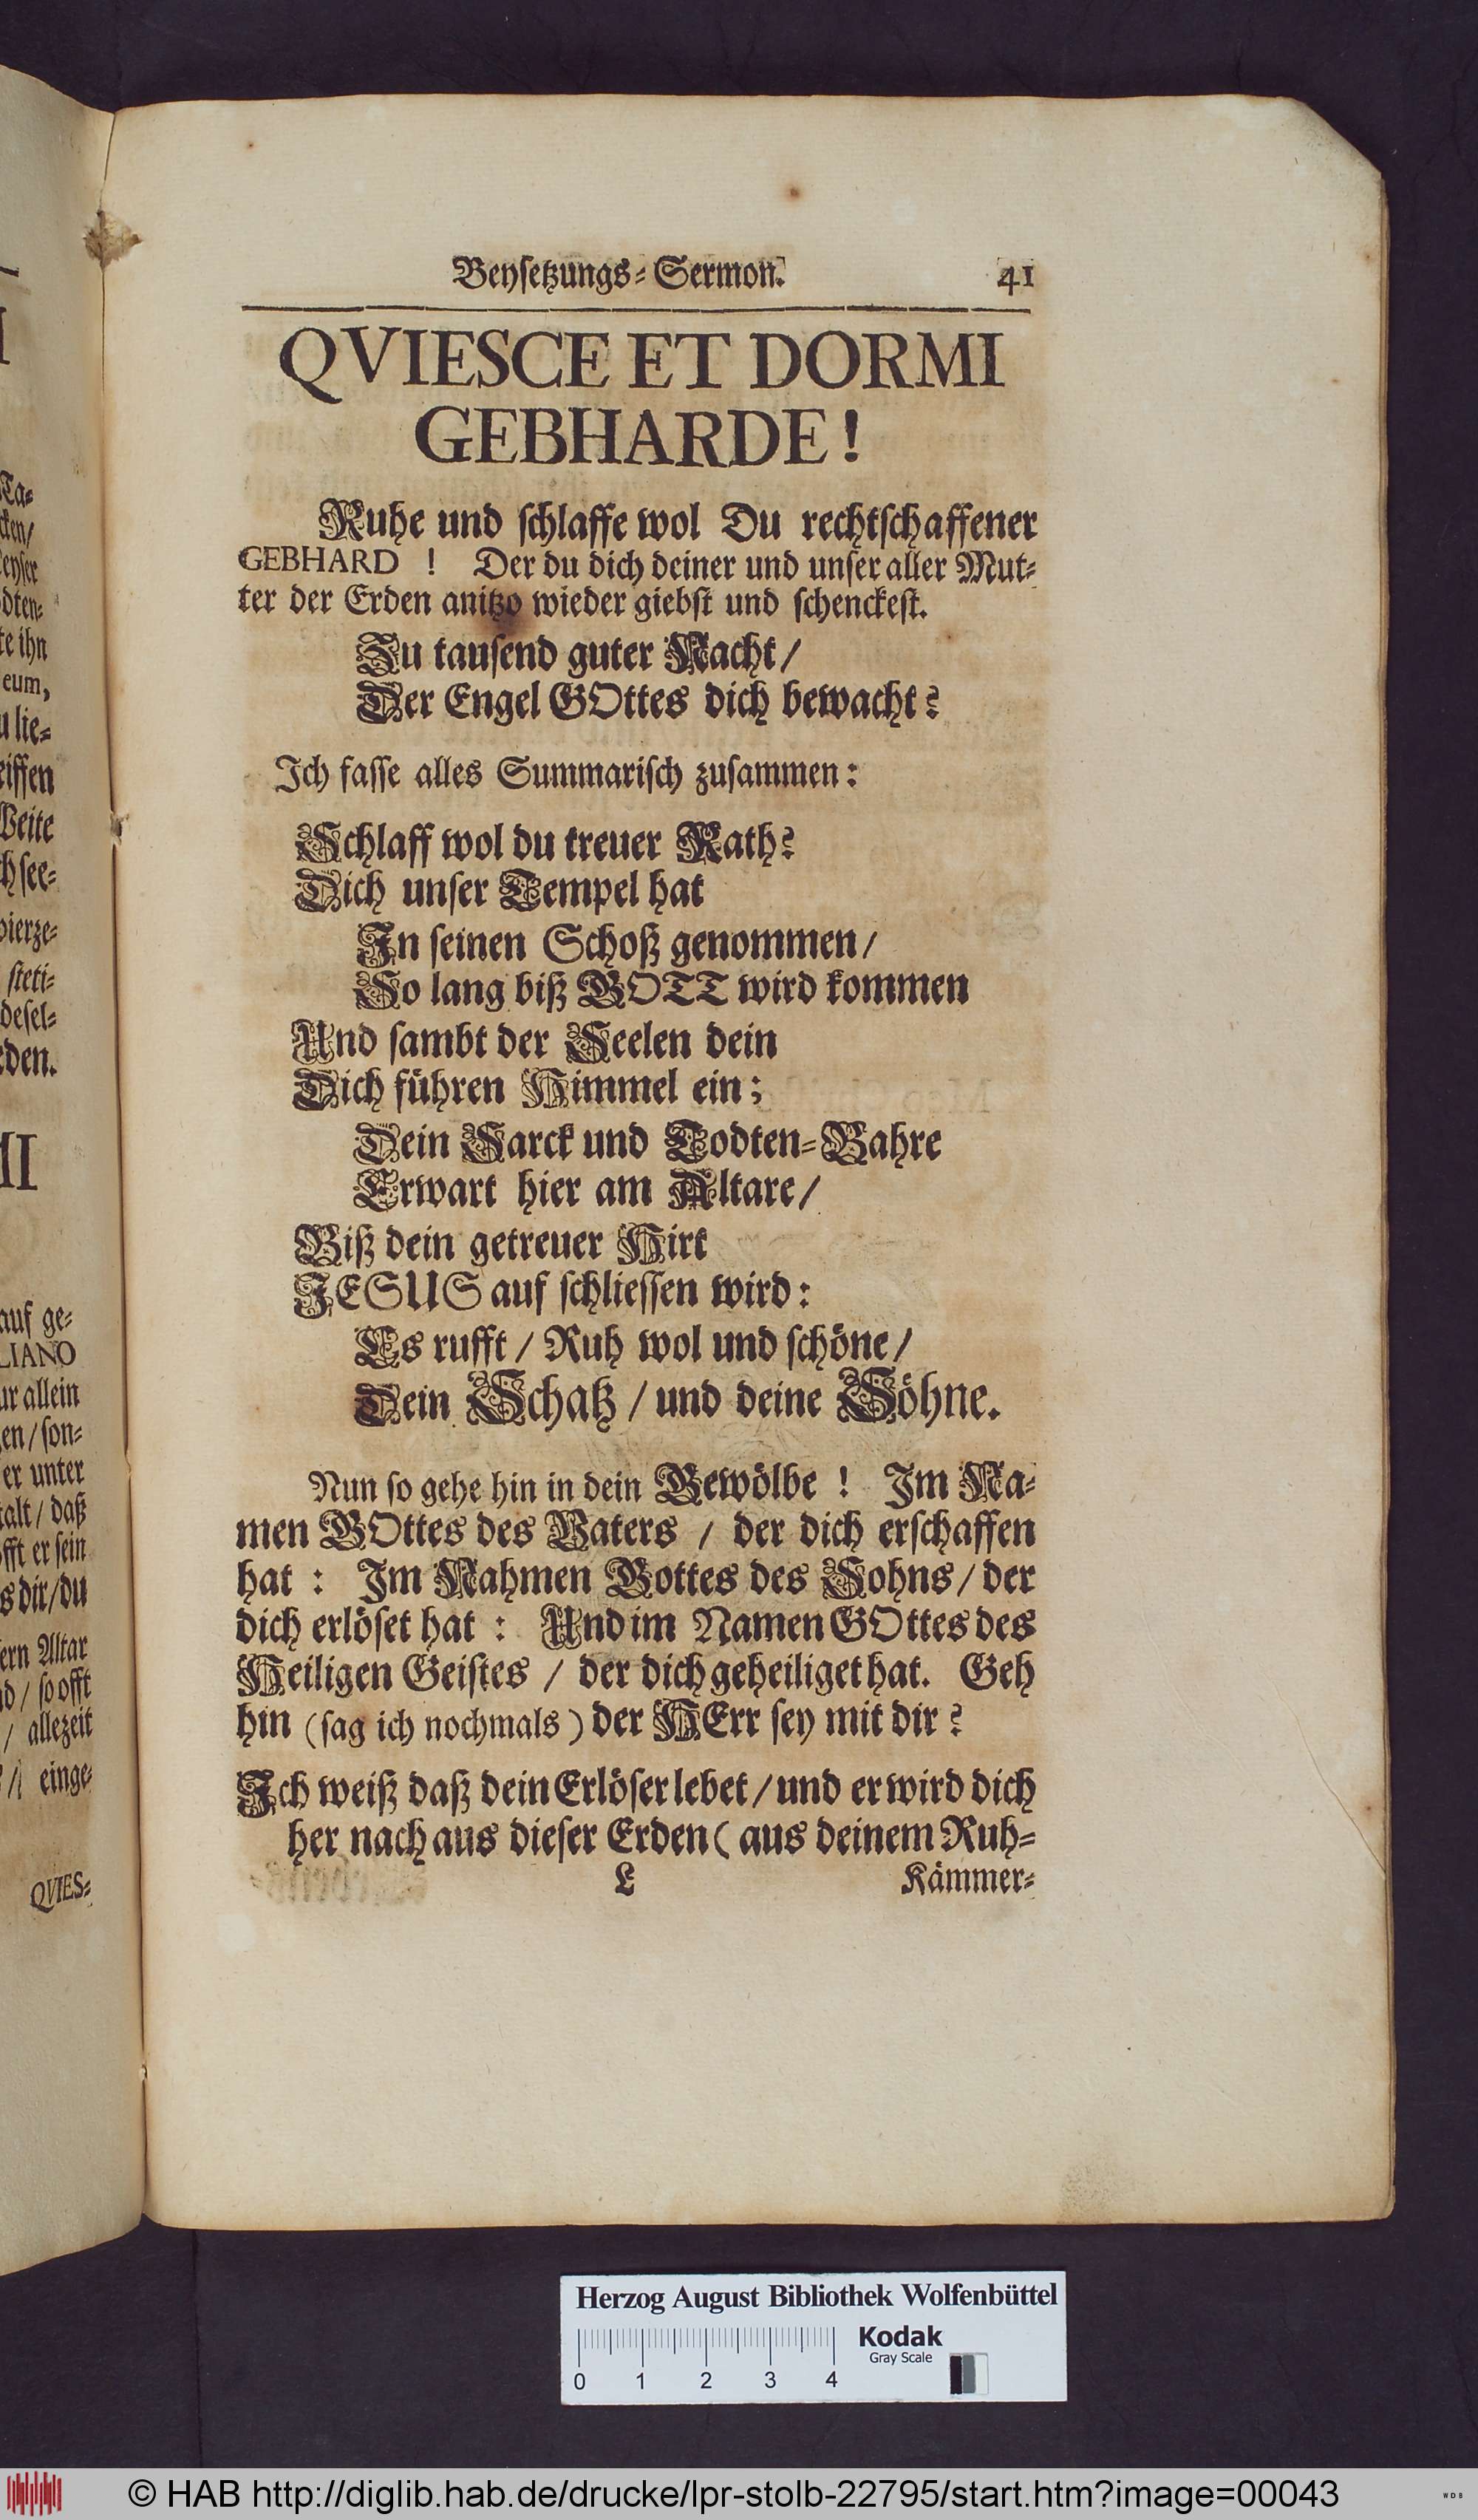 Beyſetzungs-Sermon. 41
QVIESCE ET DORMI
GEBHARDE!
Ruhe und ſchlaffe wol Du rechtſchaffener
GEBHARD ! Der du dich deiner und unſer aller Mut-
ter der Erden anitzo wieder giebſt und ſchenckeſt.
Zu tauſend guter Nacht/
Der Engel GOttes dich bewacht?
Ich faſſe alles Summariſch zuſammen:
Schlaff wol du treuer Rath?
Dich unſer Tempel hat
In ſeinen Schoß genommen/
So lang biß GOTT wird kommen
Und ſambt der Seelen dein
Dich führen Himmel ein;
Dein Sarck und Todten-Bahre
Erwart hier am Altare/
Biß dein getreuer Hirt
JESUS auf ſchlieſſen wird:
Es rufft / Ruh wol und ſchöne/
Dein Schatz / und deine Söhne.
Nun ſo gehe hin in dein Gewölbe ! Im Na-
men GOttes des Vaters / der dich erſchaffen
hat : Im Nahmen Gottes des Sohns/ der
dich erlöſet hat : Und im Namen GOttes des
Heiligen Geiſtes / der dich geheiliget hat. Geh
hin (ſag ich nochmals) der HErr ſey mit dir?
Ich weiß daß dein Erlöſer lebet/ und er wird dich
her nach aus dieſer Erden ( aus deinem Ruh-
L Kämmer-
Ta-
cken/
eyſer
dten-
te ihn
eum,
u lie-
eiffen
Weite
ch ſee-
vierze-
ſteti-
deſel-
den.
MI
auf ge-
LIANO
ur allein
en/ ſon-
er unter
talt/ daß
fft er ſein
s dir/ du
ern Altar
d / ſo offt
/ allezeit
/ einge-
QVIES-
Herzog August Bibliothek Wolfenbüttel
Kodak
Gray Scale
0 1 2 3 4
© HAB http://diglib.hab.de/drucke/lpr-stolb-22795/start.htm?image=00043
WDB